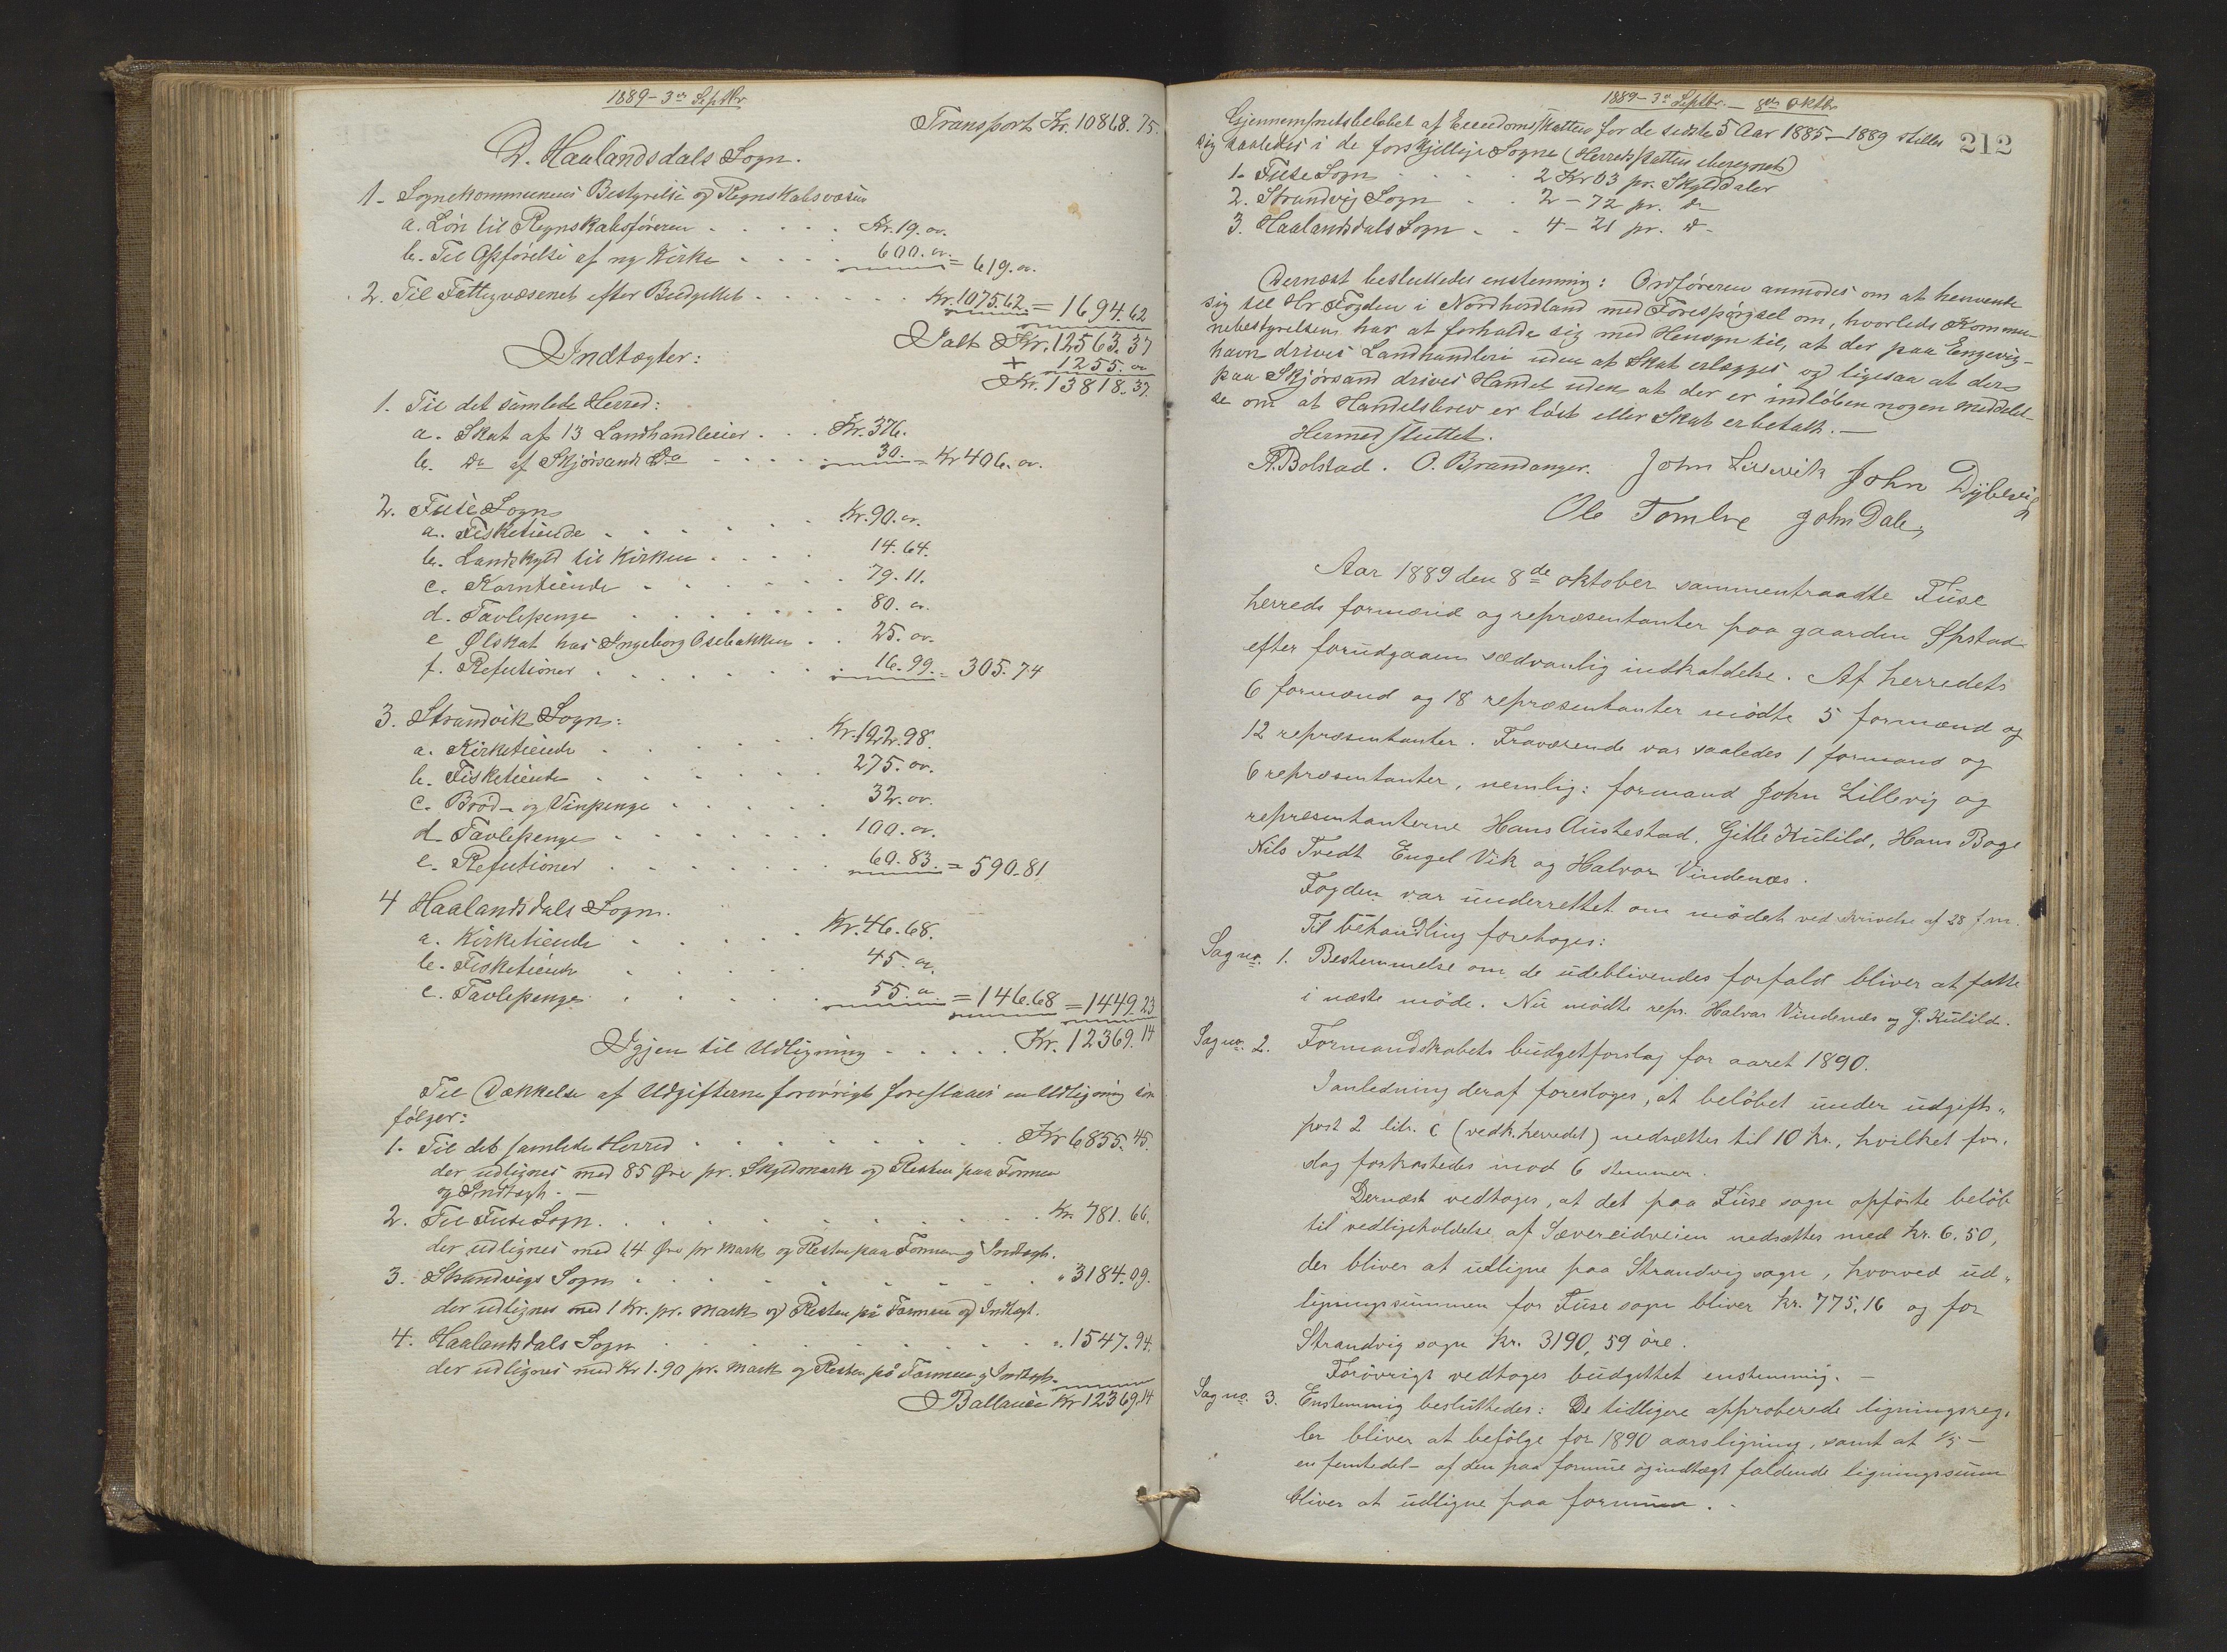 1889 - 3die Septbr.
Transport Kr. 10868.75.
D. Haalandsdals Sogn.
1. Sognekommunens Bestyrelse og Regnskabsvæsen
a. Løn til Regnskabsføreren . . . . . Kr. 19. "
b. Til Opførelse af ny Kirke . . . . 600. " = 619. "
2. Til Fattigvæsenet efter Budgettet . . . . . . Kr. 1075.62 = 1694.62
Ialt Kr. 12563.37
+ 1255. "
Kr. 13818.37.
Indtægter:
1. Til det samlede Herred:
a. Skat af 13 Landhandlerier . . . Kr. 376.
b. Do af Skjørsands Do . . . . 30. = Kr 406. "
2. Fuse Sogn
a. Fisketiende . . . . . . Kr. 90. "
b. Landskyld til Kirken . . . . 14.64.
c. Korntiende . . . . . 79.11.
d. Tavlepenge . . . . . . 80. "
e Ølskat hos Ingeborg Osebakken . . 25. "
f. Refutioner . . . . . . . 16.99. = 305.74
3. Strandvik Sogn:
a. Kirketiende . . . . . . Kr. 122.98.
b. Fisketiende . . . . . . 275. "
c. Brød- og Vinpenge . . . . . 32. "
d. Tavlepenge . . . . . . . 100. "
e. Refutioner . . . . . . 60.83. = 590.81
4 Haalandsdals Sogn.
a. Kirketiende . . . . . Kr. 46.68.
b. Fisketiende . . . . . 45. "
c. Tavlepenge . . . . . 55. " = 146.68 = 1449.23
Igjen til Udligning . . . . . Kr. 12369.14
Til Dækkelse af Udgifterne forøvrigt foreslaaes en Udligning som
følger:
1. Til det samlede Herred . . . . . . . . . Kr 6855.45.
der udlignes med 85 Øre pr. Skyldmark og Resten paa Formue
og Indtægt. -
2. Til Fuse Sogn. . . . . . . . . . Kr. 781.66.
der udlignes med 14 Øre pr Mark og Resten paa Formue og Indtægt.
3. Strandvigs Sogn . . . . . . . . . " 3184.09.
der udlignes med 1 Kr. pr. Mark og Resten på Formue og Indtægt.
4. Haalandsdals Sogn . . . . . . . . . " 1547.94.
der udlignes med Kr 1.90 pr. Mark og Resten på Formue og Indtægt.
Ballance Kr 12369.14
1889 - 3die Septbr. - 8de Oktbr
212
Gjennemsnitsbeløbet af Eiendomsskatten for de sidste 5 Aar 1885-1889 stiller
sig saaledes i de forskjellige Sogne (Herredsskatten iberegnet)
1. Fuse Sogn . . . . 2 Kr 03 pr. Skylddaler
2. Strandvig Sogn . . 2 - 72 pr. do
3. Haalandsdals Sogn . . 4 - 21 pr. do
Dernæst besluttedes enstemmig: Ordføreren anmodes om at henvende
sig til Hr Fogden i Nordhordland med Forespørgsel om, hvorledes Kommu-
nebestyrelsen har at forholde sig med Hensyn til, at der paa Engevig-
havn drives Landhandleri uden at Skat erlægges og ligesaa at der
paa Skjørsand drives Handel uden at der er indløben nogen Meddelel-
se om at Handelsbrev er løst eller Skat er betalt. -
Hermed sluttet.
A. Bolstad. O. Brandanger. John Lillevik John Dybevig
Ole Tomlve John Dale,
Aar 1889 den 8de oktober sammentraadte Fuse
herreds formænd og repræsentanter paa gaarden Opstad
efter forudgaaen sædvanlig indkaldelse. Af herredets
6 formænd og 18 repræsentanter mødte 5 formænd og
12 repræsentanter. Fraværende var saaledes 1 formand og
6 repræsentanter, nemlig: formand John Lillevig og
repræsentanterne Hans Austestad, Gitle Kulild, Hans Boge
Nils Tvedt Engel Vik og Halvor Vindenæs.
Fogden var underrettet om mødet ved skrivelse af 28 f.m.
Til behandling foretoges:
Sag no. 1. Bestemmelse om de udeblivendes forfald bliver at fatte
i næste møde. Nu mødte repr. Halvor Vindenæs og G. Kulild.
Sag no. 2. Formandskabets budgetforslag for aaret 1890.
I anledning deraf foresloges, at beløbet under udgifts-
post 2 litr. c (vedk. herredet) nedsættes til 10 kr., hvilket for-
slag forkastedes mod 6 stemmer.
Dernæst vedtoges, at det paa Fuse sogn opførte beløb
til vedligeholdelse af Sævereidveien nedsættes med kr. 6.50,
der bliver at udligne paa Strandvig sogn, hvorved ud-
ligningssummen for Fuse sogn bliver kr. 775,16 og for
Strandvig sogn kr. 3190,59 øre.
Forøvrigt vedtoges budgettet enstemmig. -
Sag no. 3. Enstemmig besluttedes: De tidligere approberede ligningsreg-
ler bliver at befølge for 1890 aarsligning, samt at 1/5 -
en femtedel - af den paa formue og indtægt faldende ligningssum
bliver at udligne paa formuen. -